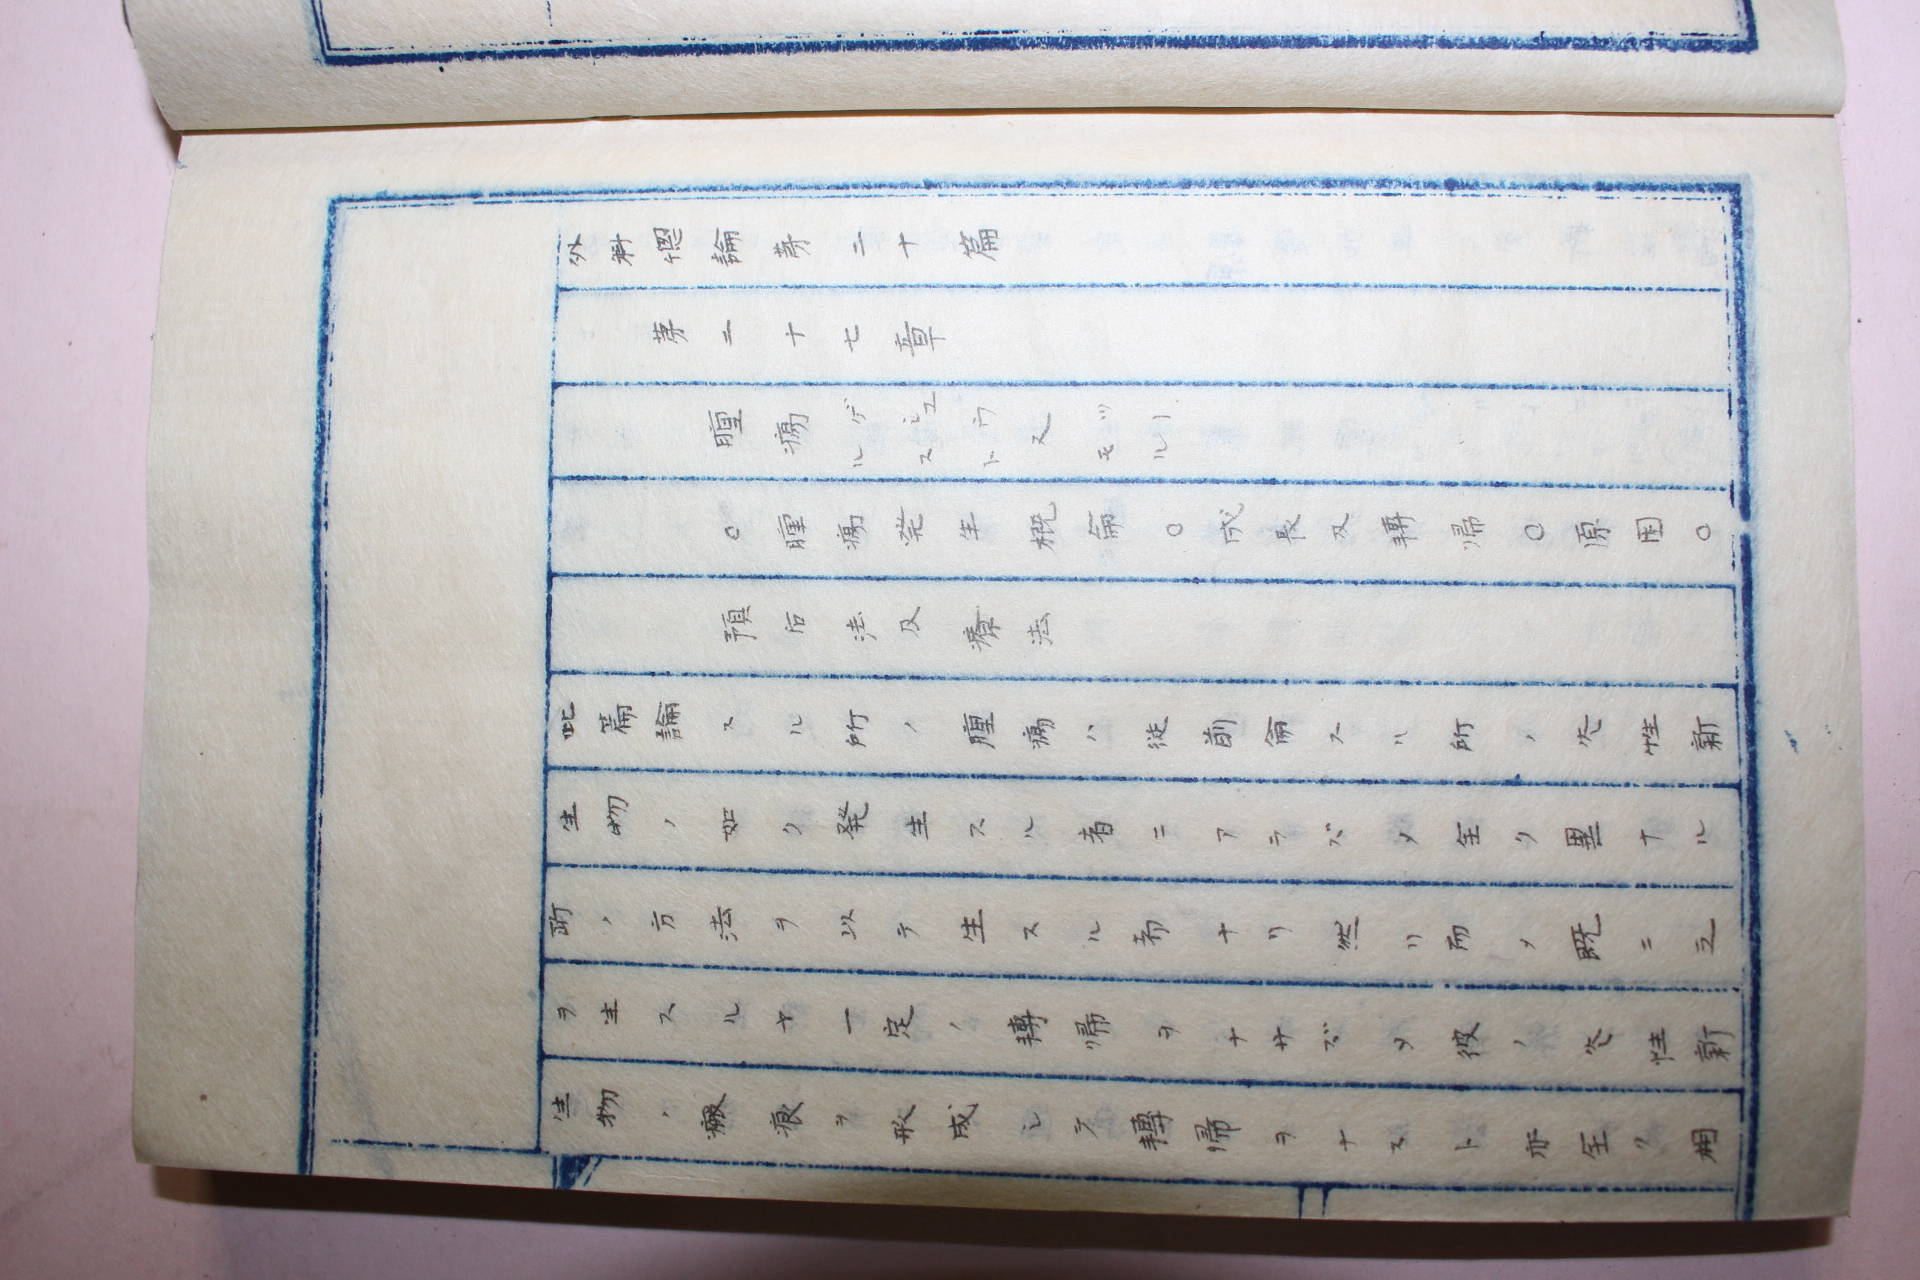 外科偲論芽二十篇
芽二十七章
腫瘍 ゲシュウスツー ルスト 又 モル
○腫瘍発生概侖○成長及轉帰○原因○
預后法及療法
此篇論スル所ノ腫瘍ハ従前侖スル所ノ炎性新
生物ノ如ク発生スル者ニアラズメ全ク異ナル
所ノ方法ヲ以テ生スル者ナリ然リ而メ既ニ之
ヲ生スルヤ一定ノ轉帰ヲナサズメ彼ノ炎性新
生物ノ瘢痕ヲ形成シテ轉帰ヲナスト亦全ク相